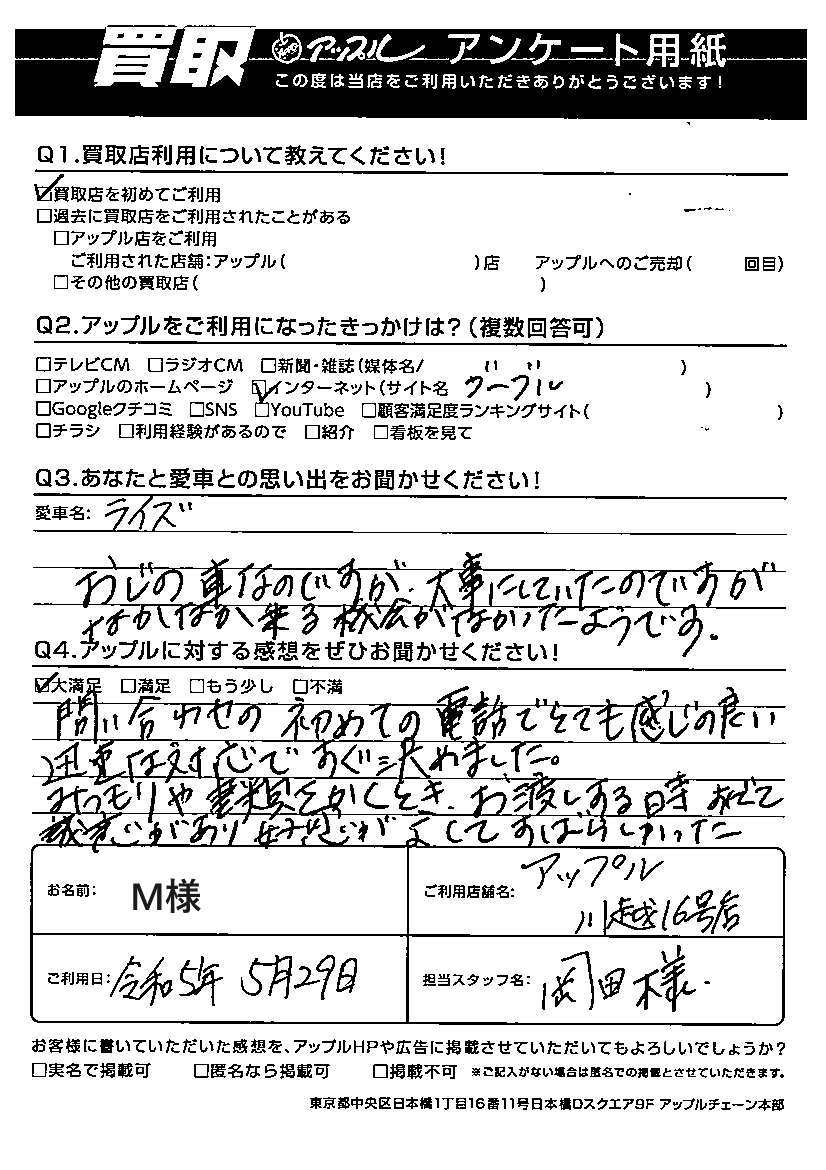 買取 アップル アンケート用紙
この度は当店をご利用いただきありがとうございます!
Q1.買取店利用について教えてください!
☑買取店を初めてご利用
□過去に買取店をご利用されたことがある
□アップル店をご利用
ご利用された店舗:アップル( )店 アップルへのご売却( 回目)
□その他の買取店( )
Q2.アップルをご利用になったきっかけは?(複数回答可)
□テレビCM □ラジオCM □新聞・雑誌(媒体名/ )
□アップルのホームページ ☑インターネット(サイト名 グーグル )
□Googleクチコミ □SNS □YouTube □顧客満足度ランキングサイト( )
□チラシ □利用経験があるので □紹介 □看板を見て
Q3.あなたと愛車との思い出をお聞かせください!
愛車名: ライズ
おじの車なのですが、大事にしていたのですが
なかなか乗る機会がなかったようです。
Q4.アップルに対する感想をぜひお聞かせください!
☑大満足 □満足 □もう少し □不満
問い合わせの初めての電話でとても感じの良い
迅速な対応ですぐに決めました。
みつもりや書類をかくとき、お渡しする時
があり がよくてすばらしかった
お名前: M様
ご利用店舗名: アップル
川越16号店
ご利用日: 令和5年 5月29日
担当スタッフ名: 岡田様.
お客様に書いていただいた感想を、アップルHPや広告に掲載させていただいてもよろしいでしょうか?
□実名で掲載可 □匿名なら掲載可 □掲載不可 ※ご記入がない場合は匿名での掲載とさせていただきます。
東京都中央区日本橋1丁目16番11号日本橋Dスクエア9F アップルチェーン本部